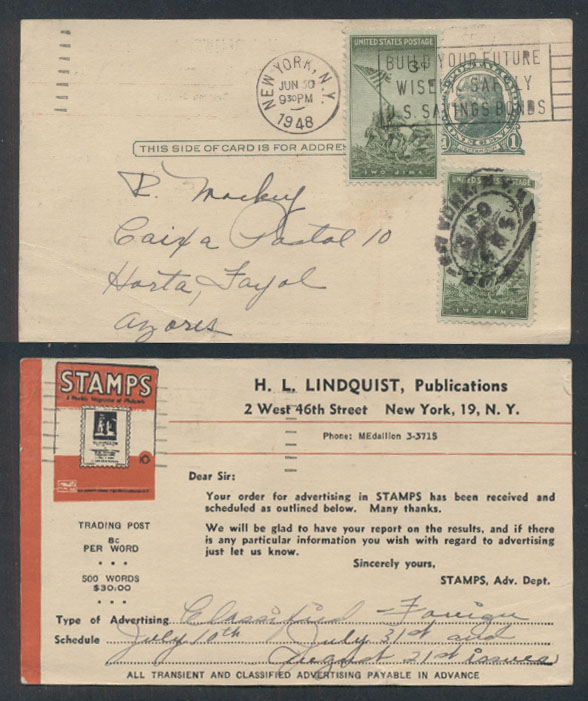 UNITED STATES POSTAGE
3¢
IWO JIMA
NEW YORK, N.Y.
JUN 30
9 30 PM
1948
BUILD YOUR FUTURE
WISELY SAFELY
U.S. SAVINGS BONDS
1
THIS SIDE OF CARD IS FOR ADDRE
UNITED
IWO JIMA
R. Mackey
Caixa Postal 10
Horta, Fayal
Azores
STAMPS
A Weekly Magazine of Philately
10¢
H. L. LINDQUIST, Publications
2 West 46th Street New York, 19, N. Y.
Phone: MEdallion 3-3715
Dear Sir:
Your order for advertising in STAMPS has been received and
scheduled as outlined below. Many thanks.
We will be glad to have your report on the results, and if there
is any particular information you wish with regard to advertising
just let us know.
Sincerely yours,
STAMPS, Adv. Dept.
TRADING POST
8c
PER WORD
• • •
500 WORDS
$30.00
• • •
Type of Advertising Classified - Foreign
Schedule July 10th July 31st and
August 21st issues
ALL TRANSIENT AND CLASSIFIED ADVERTISING PAYABLE IN ADVANCE